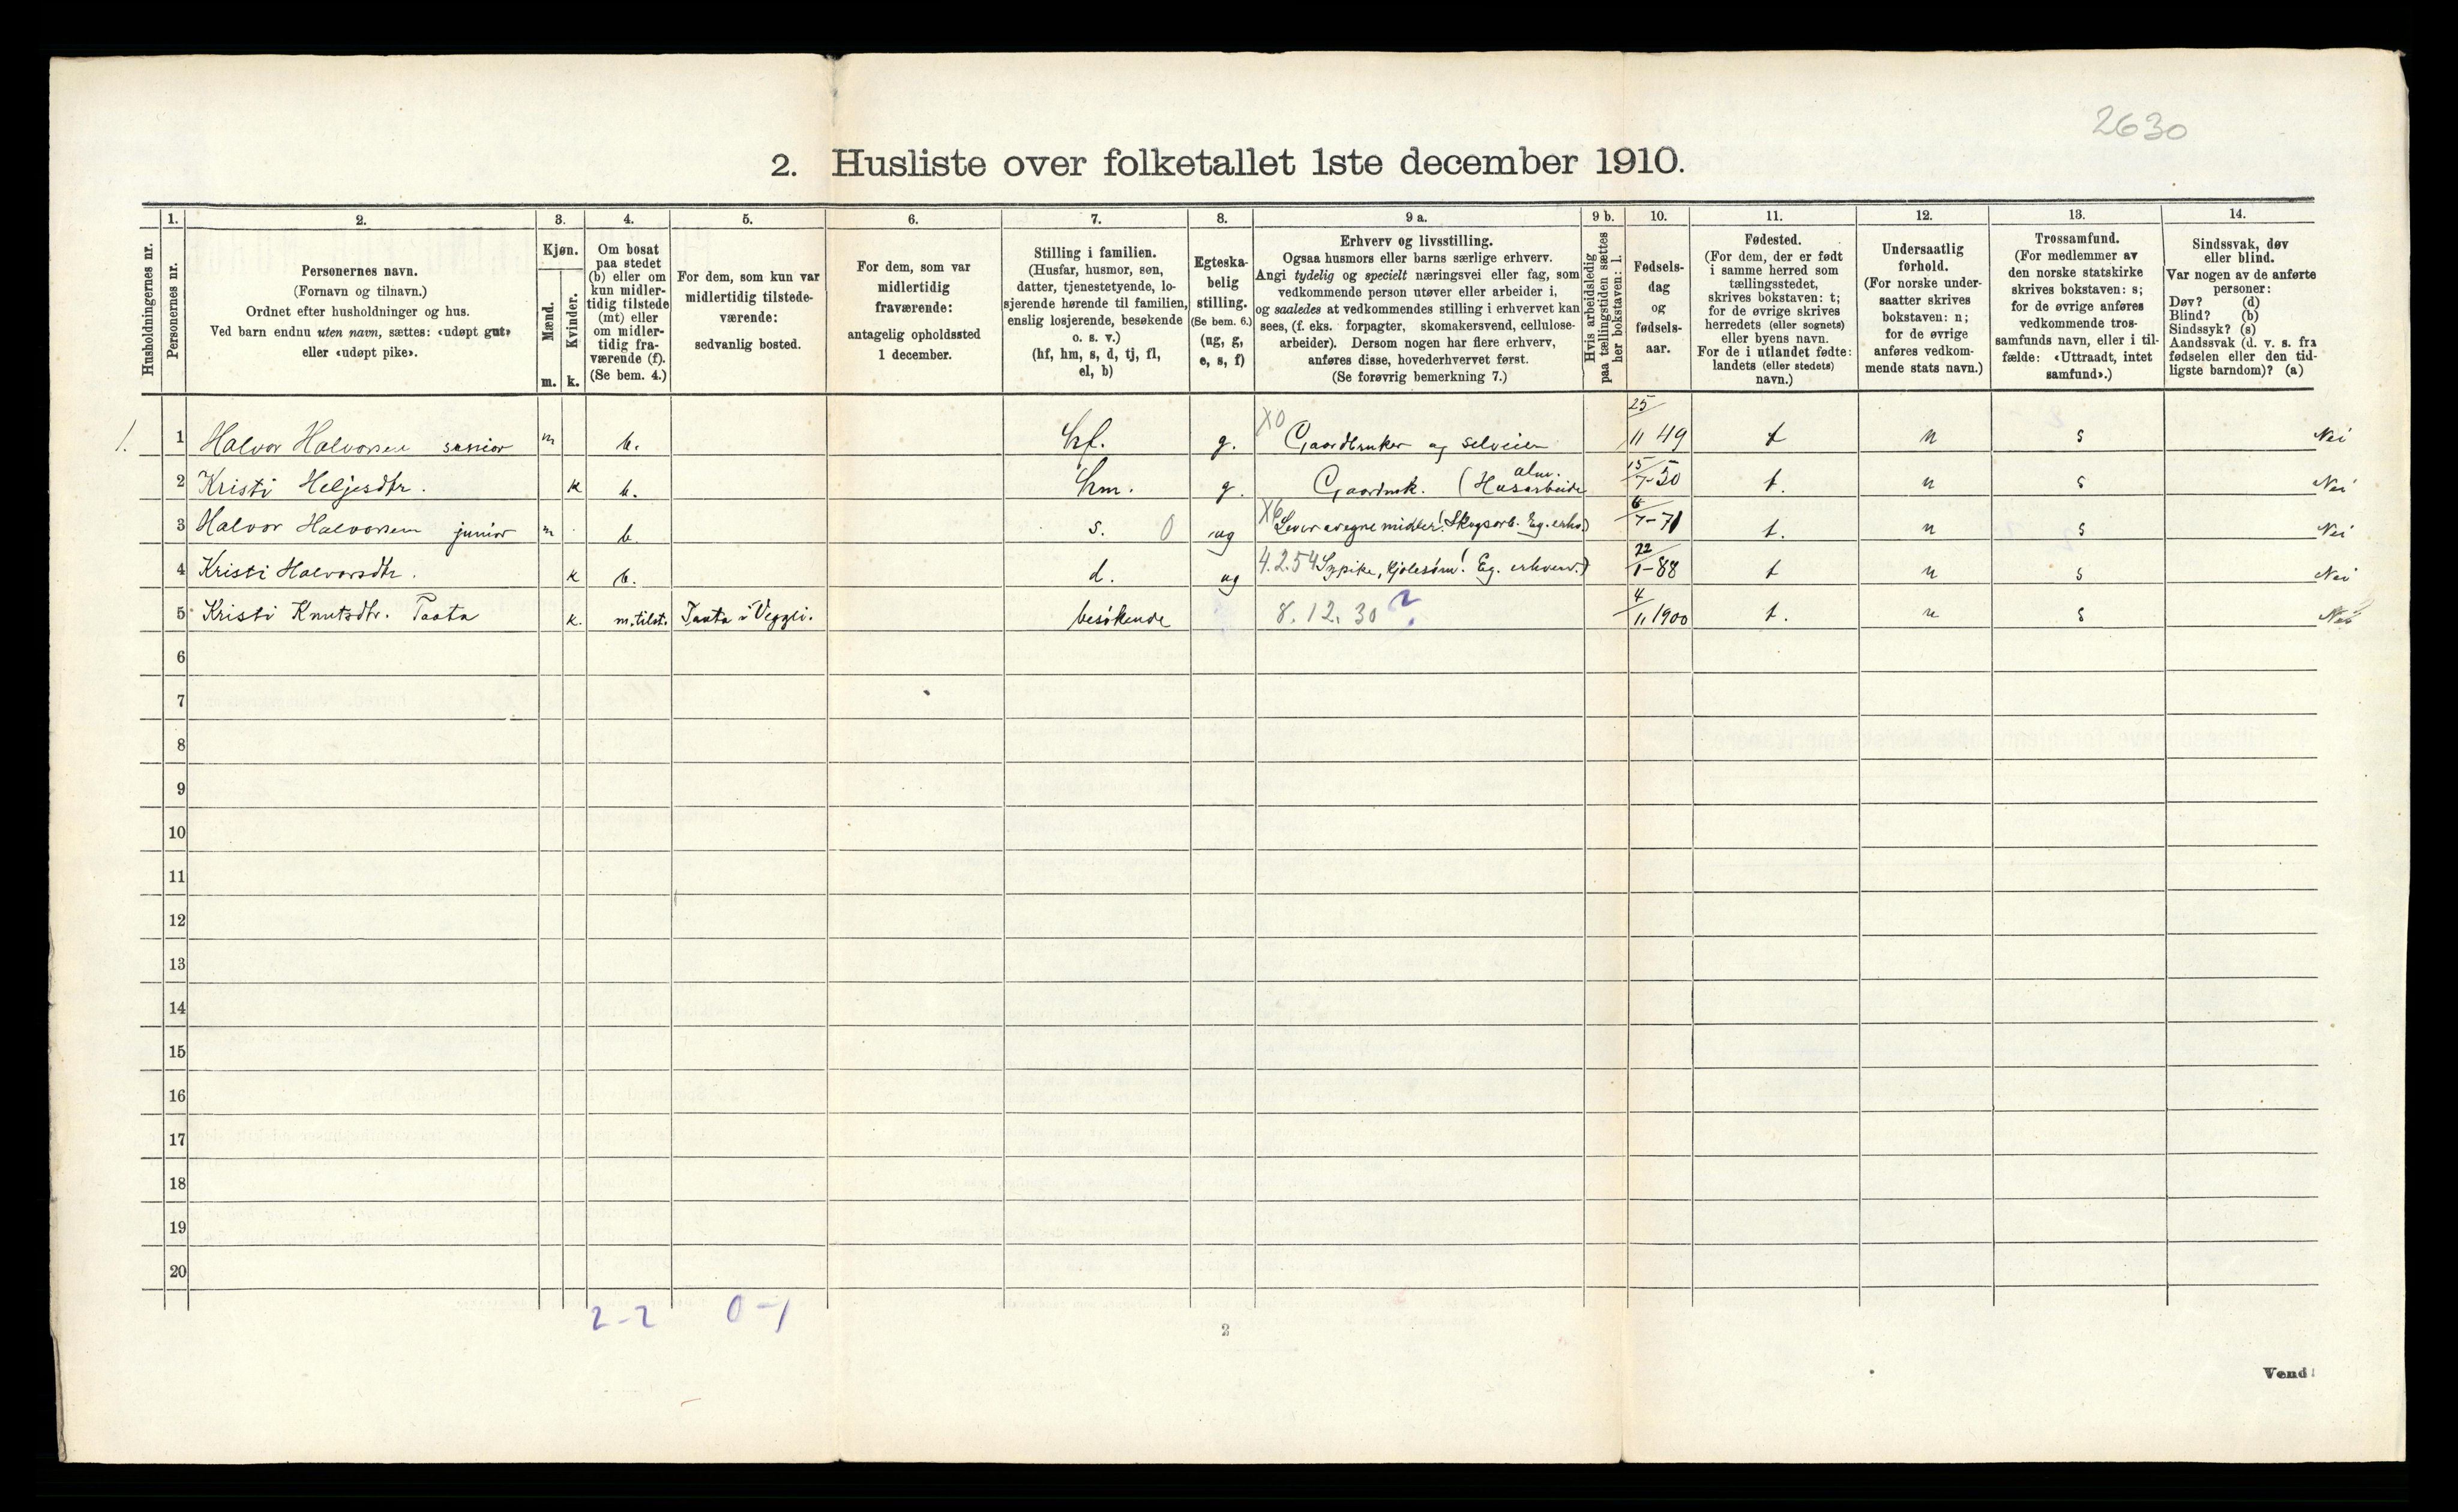 2630
2. Husliste over folketallet 1ste december 1910.
Husholdningernes nr.
1.
Personernes nr.
2.
Personernes navn.
(Fornavn og tilnavn.)
Ordnet efter husholdninger og hus.
Ved barn endnu uten navn, sættes: «udøpt gut»
eller «udøpt pike».
3.
Kjøn.
Mænd.
Kvinder.
m. k.
4.
Om bosat
paa stedet
(b) eller om
kun midler-
tidig tilstede
(mt) eller
om midler-
tidig fra-
værende (f).
(Se bem. 4.)
5.
For dem, som kun var
midlertidig tilstede-
værende:
sedvanlig bosted.
6.
For dem, som var
midlertidig
fraværende:
antagelig opholdssted
1 december.
7.
Stilling i familien.
(Husfar, husmor, søn,
datter, tjenestetyende, lo-
sjerende hørende til familien,
enslig losjerende, besøkende
o. s. v.)
(hf, hm, s, d, tj, fl,
el, b)
8.
Egteska-
belig
stilling.
(Se bem. 6.)
(ug, g,
e, s, f)
9 a.
Erhverv og livsstilling.
Ogsaa husmors eller barns særlige erhverv.
Angi tydelig og specielt næringsvei eller fag, som
vedkommende person utøver eller arbeider i,
og saaledes at vedkommendes stilling i erhvervet kan
sees, (f. eks. forpagter, skomakersvend, cellulose-
arbeider). Dersom nogen har flere erhverv,
anføres disse, hovederhvervet først.
(Se forøvrig bemerkning 7.)
9 b.
Hvis arbeidsledig
paa tællingstiden sættes
her bokstaven: l.
10.
Fødsels-
dag
og
fødsels-
aar.
11.
Fødested.
(For dem, der er født
i samme herred som
tællingsstedet,
skrives bokstaven: t;
for de øvrige skrives
herredets (eller sognets)
eller byens navn.
For de i utlandet fødte:
landets (eller stedets)
navn.)
12.
Undersaatlig
forhold.
(For norske under-
saatter skrives
bokstaven: n;
for de øvrige
anføres vedkom-
mende stats navn.)
13.
Trossamfund.
(For medlemmer av
den norske statskirke
skrives bokstaven: s;
for de øvrige anføres
vedkommende tros-
samfunds navn, eller i til-
fælde: «Uttraadt, intet
samfund».)
14.
Sindssvak, døv
eller blind.
Var nogen av de anførte
personer:
Døv? (d)
Blind? (b)
Sindssyk? (s)
Aandssvak (d. v. s. fra
fødselen eller den tid-
ligste barndom)? (a)
1. 1 Halvor Halvorsen senior m b. hf. g. X0 Gaardbruker og selveier 25/11 49 t n s Nei
2 Kristi Heljesdtr. k b. hm. g. Gaardmk. (alm. Husarbeide 15/7-50 t. n s Nei
3 Halvor Halvorsen junior m b s. 0 ug Lever av egne midler! Skogsarb. Eg. erhv.) 6/7-71 t. n s Nei
4 Kristi Halvorsdtr. k b. d. ug 4.2.54 Sypike, kjolesøm! Eg. erhverv.) 22/1-88 t n s Nei
5 Kristi Knutsdtr. Taata k. m. tilst. Taata i Veggli. besøkende 8.12.30 ? 4/11 1900 t. n s Nei
6
7
8
9
10
11
12
13
14
15
16
17
18
19
20
2-2 0-1
2
Vend!